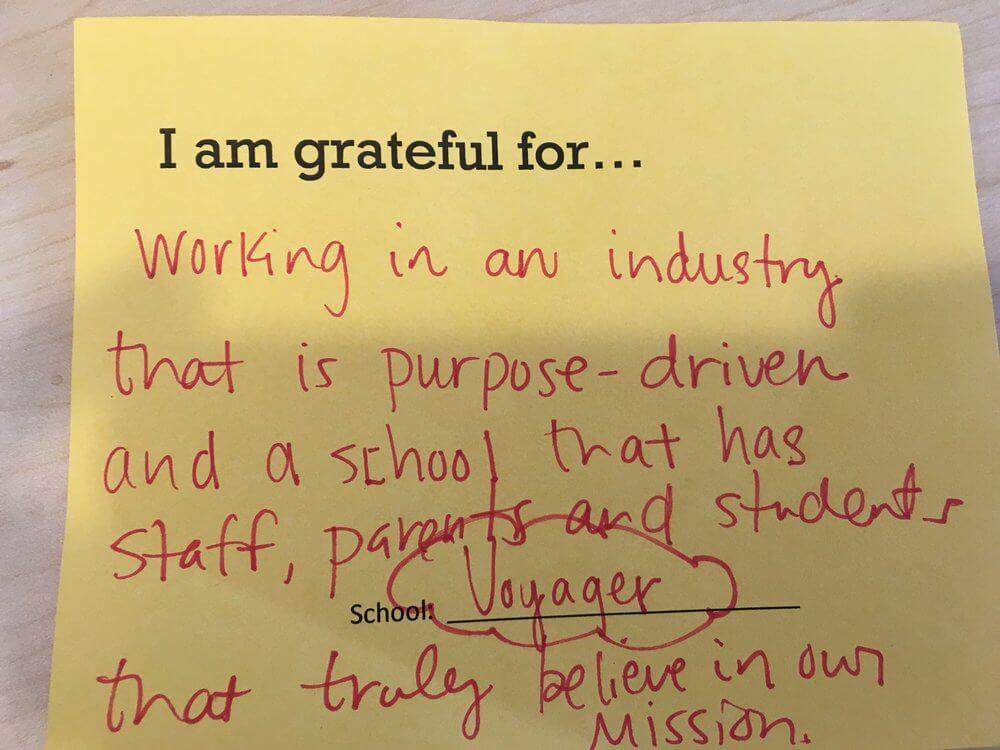 I am grateful for...
Working in an industry
that is purpose-driven
and a school that has
staff, parents and students
School: Voyager
that truly believe in our
Mission.